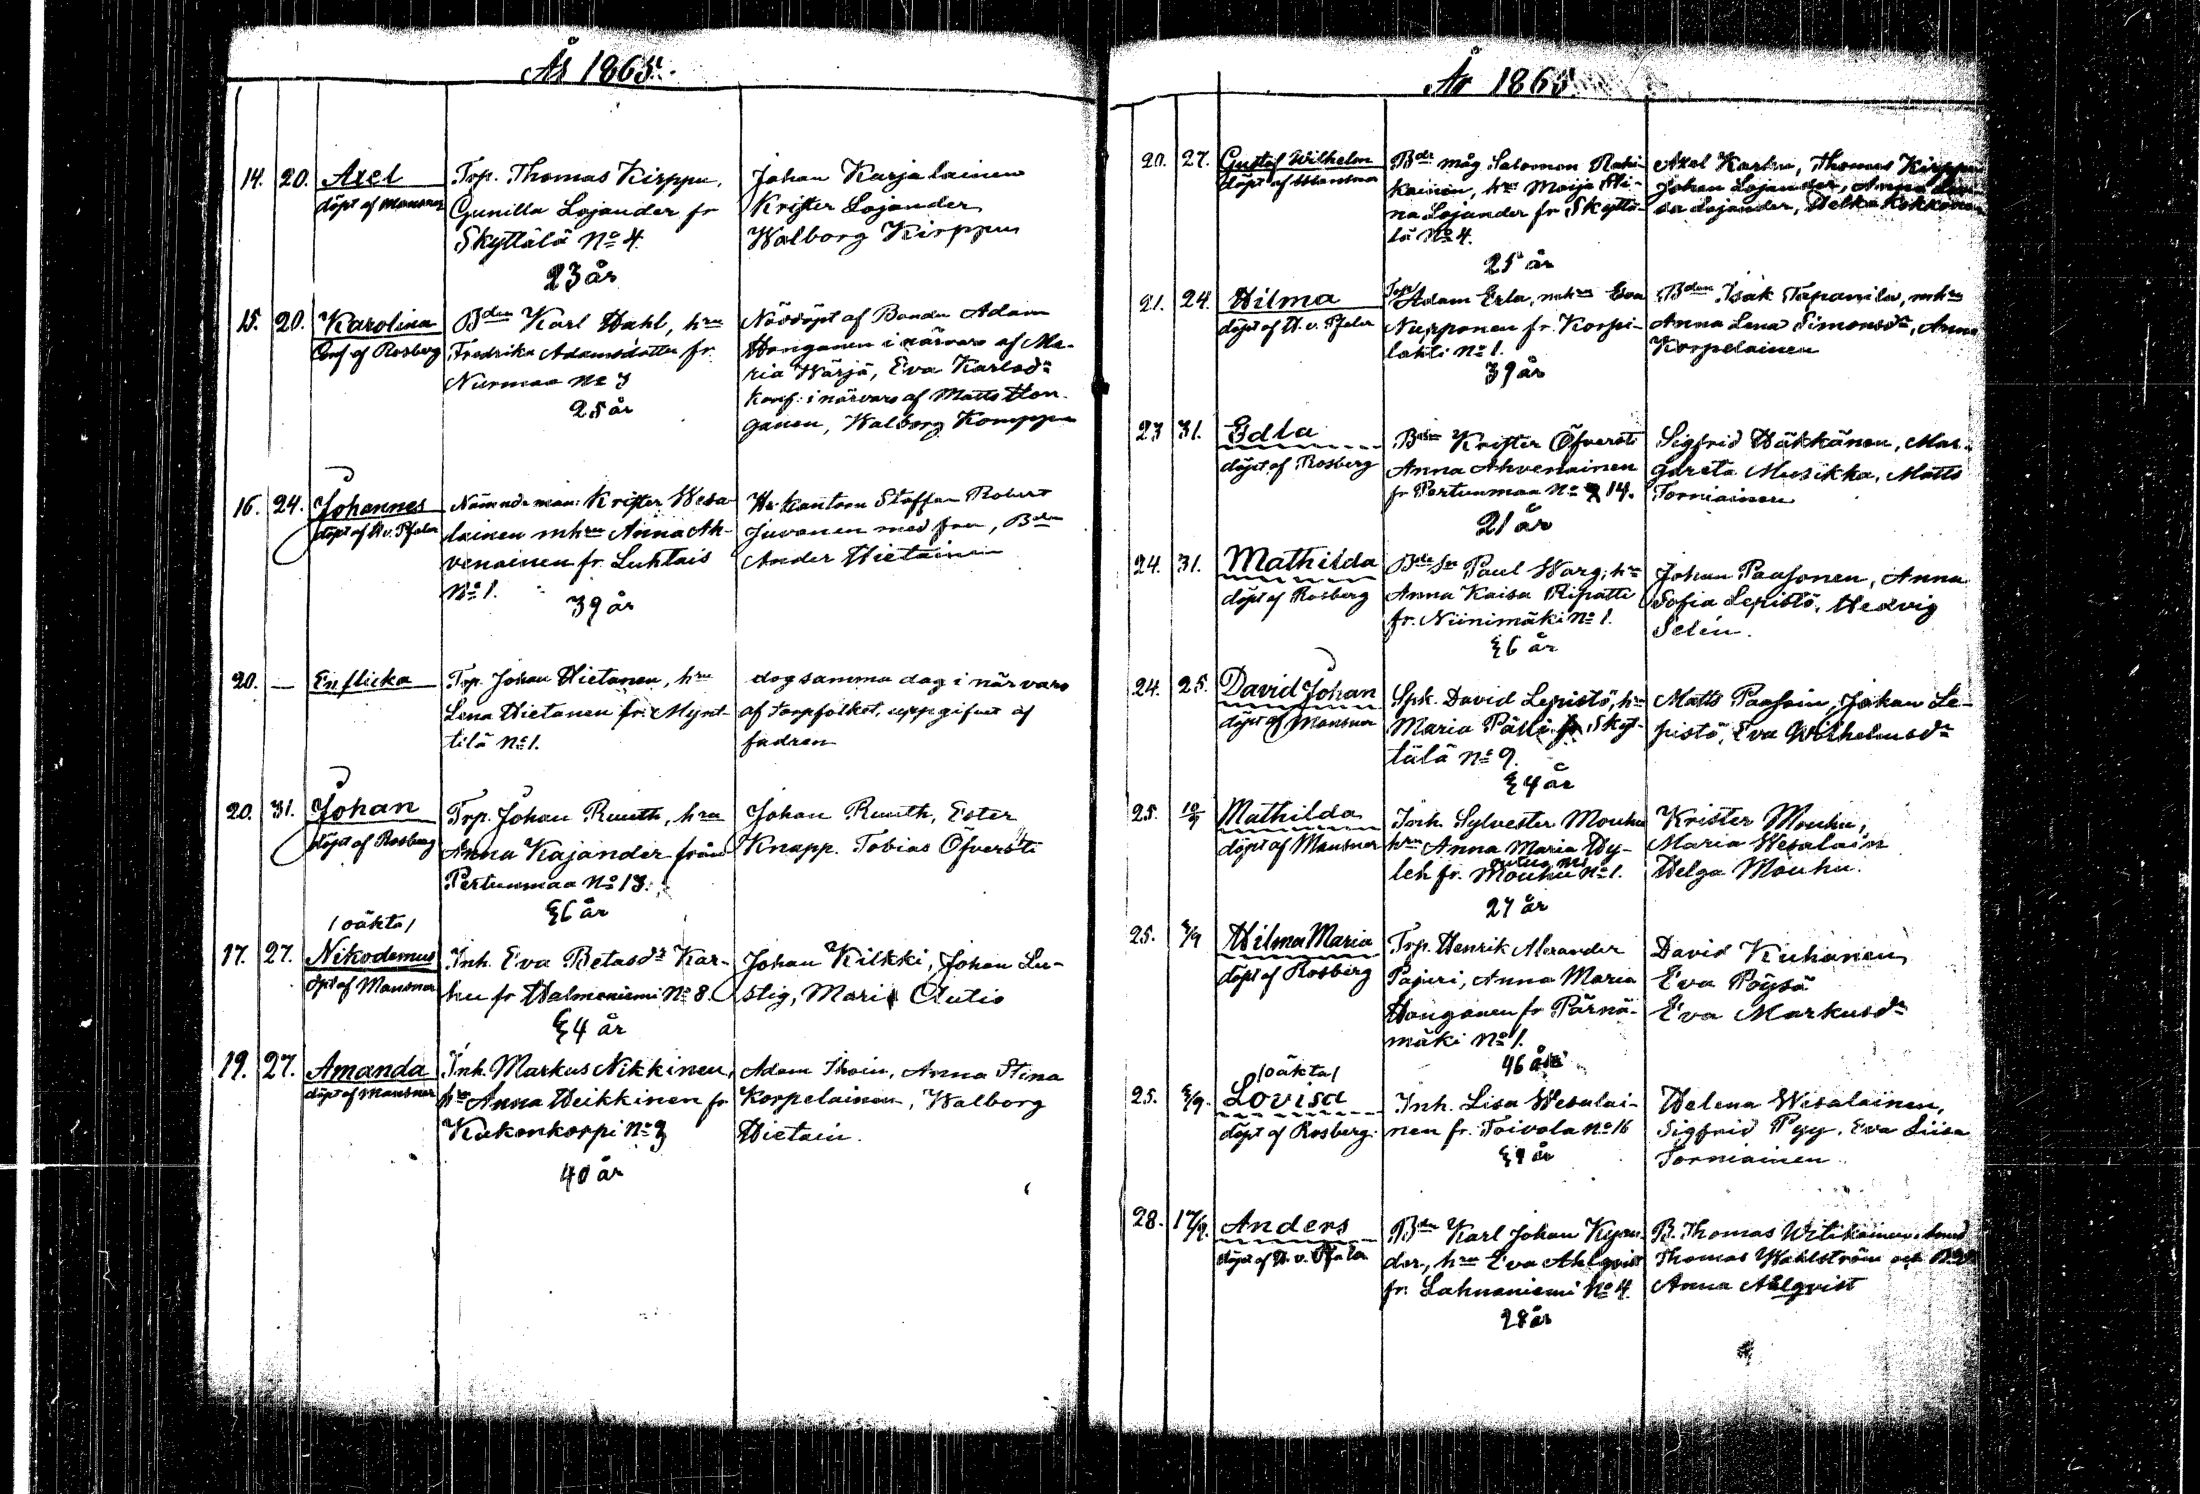 År 1865.
14. 20. Axel
döpt af Mansner
Trp. Thomas Kirppu,
Gunilla Lojander fr
Skyttälä No 4.
23 år
Johan Karjalainen
Krister Lojander
Walborg Kirppu
15. 20. Karolina
Conf. af Rosberg
Bden Karl Dahl, hru
Fredrika Adamsdotter fr
Nurmaa No 3
25 år
Nöddöpt af Bonden Adam
Honganen i närvaro af Ma-
ria Wärjä, Eva Karlsdr
konf. i närvaro af Matts Hon-
ganen, Walborg Komppa
16. 24. Johannes
döpt af H. v. Pfaler
Nämndeman Krister Wesa-
lainen mhru Anna Ah-
venainen fr. Luhtais
No 1.
39 år
Hr kantorn Staffan Robert
Juvonen med fru, Bden
Ander Hietainen
20. — En flicka
Trp. Johan Hietanen, hru
Lena Hietanen fr. Mynt-
tilä No 1.
dog samma dag i närvaro
af torpfolket, uppgifvet af
fadren
20. 31. Johan
döpt af Rosberg
Trp. Johan Ruuth, hru
Anna Kajander från
Pertunmaa No 13.
36 år
Johan Ruuth, Ester
Knapp. Tobias Öfversti
/oäkta/
17. 27. Nikodemus
döpt af Mansner
Inh. Eva Betasdr Kar-
hu fr Halmeniemi No 8.
34 år
Johan Kilkki, Johan Lu-
stig, Maria Autio
19. 27. Amanda
döpt af Mansner
Inh. Markus Nikkinen,
hru Anna Heikkinen fr
Kukonkorpi No 3
40 år
Adam Thoin, Anna Stina
Korpelainen, Walborg
Hietain.
År 1865
20. 27. Gustaf Wilhelm
döpt af Mansner
Bde måg Salomon
kainen, hru Maija Sti-
na Lojander fr Skyttä-
lä No 4.
25 år
Axel Karhu, Thomas Kirppu
Johan Lojander, Anna Lovi-
sa Lojander, Helka Kokkonen
21. 24. Hilma
döpt af H. v. Pfaler
Trp Adam Erla, mhru Eva
Nupponen fr. Korpi-
lahti No 1.
39 år
Bden Isak Tapanila, mhru
Anna Lena Simonsdr, Anna
Korpelainen
23 31. Edla
döpt af Rosberg
Bden Krister Öfversti
Anna Ahvenainen
fr Pertunmaa No 14.
21 år
Sigfrid Häkkänen, Mar-
gareta Musikka, Matts
Torniainen
24. 31. Mathilda
döpt af Rosberg
Bde Sn Paul Warg, hru
Anna Kaisa Ripatti
fr. Niinimäki No 1.
36 år
Johan Paasonen, Anna
Sofia Lepistö, Hedvig
Selén.
24. 25. David Johan
döpt af Mansner
Spk. David Lepistö, hru
Maria Pälli fr Skyt-
tälä No 9.
34 år
Matts Paasoin, Johan Le-
pistö, Eva Wilhelmsdr
25. 10/9 Mathilda
döpt af Mansner
Inh. Sylvester Mouhu
hru Anna Maria Hy-
leh fr. Mouhu No 1.
27 år
Krister Mouhu,
Maria Wesalain
Helga Mouhu.
25. 3/9 Hilma Maria
döpt af Rosberg
Trp. Henrik Alexander
Pajuri, Anna Maria
Honganen fr Pärnä-
mäki No 1.
46 år
David Kuhanen
Eva Pöysä
Eva Markusdr
/oäkta/
25. 3/9. Lovisa
döpt af Rosberg.
Inh. Lisa Wesalai-
nen fr. Toivola No 16
39 år
Helena Wesalainen,
Sigfrid Pyy, Eva Liisa
Torniainen
28. 17/9. Anders
döpt af H. v. Pfaler
Bden Karl Johan Kyan-
der, hru Eva Ahlqvist
fr. Lahnaniemi No 4.
28 år
B. Thomas Witikainen
Thomas Wahlström och
Anna Ahlqvist